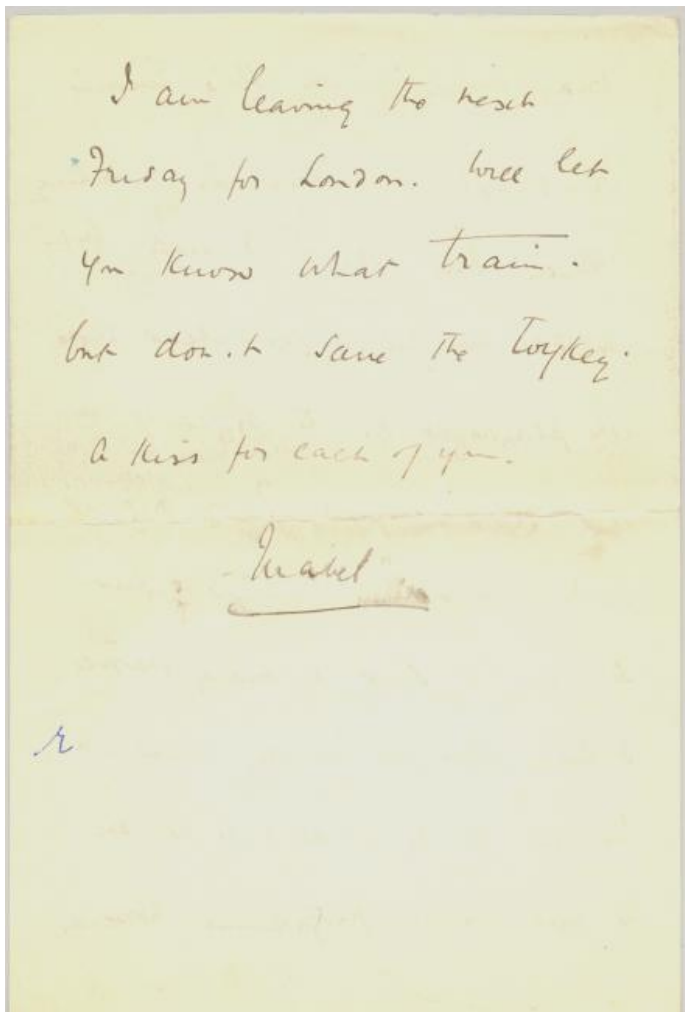 I am leaving the next
Friday for London. Will let
you know what train.
but don.t save the Toykey.
a kiss for each of you.
Mabel
r